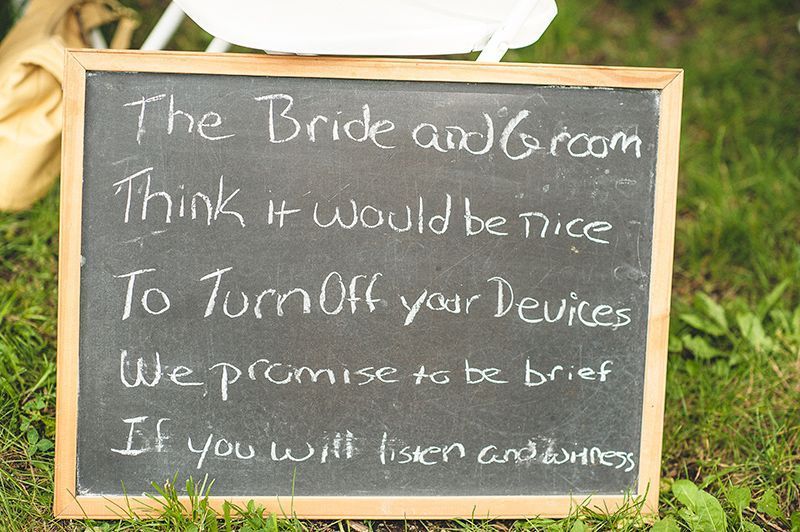 The Bride and Groom
Think it would be nice
To Turn Off your Devices
We promise to be brief
If you will listen and witness